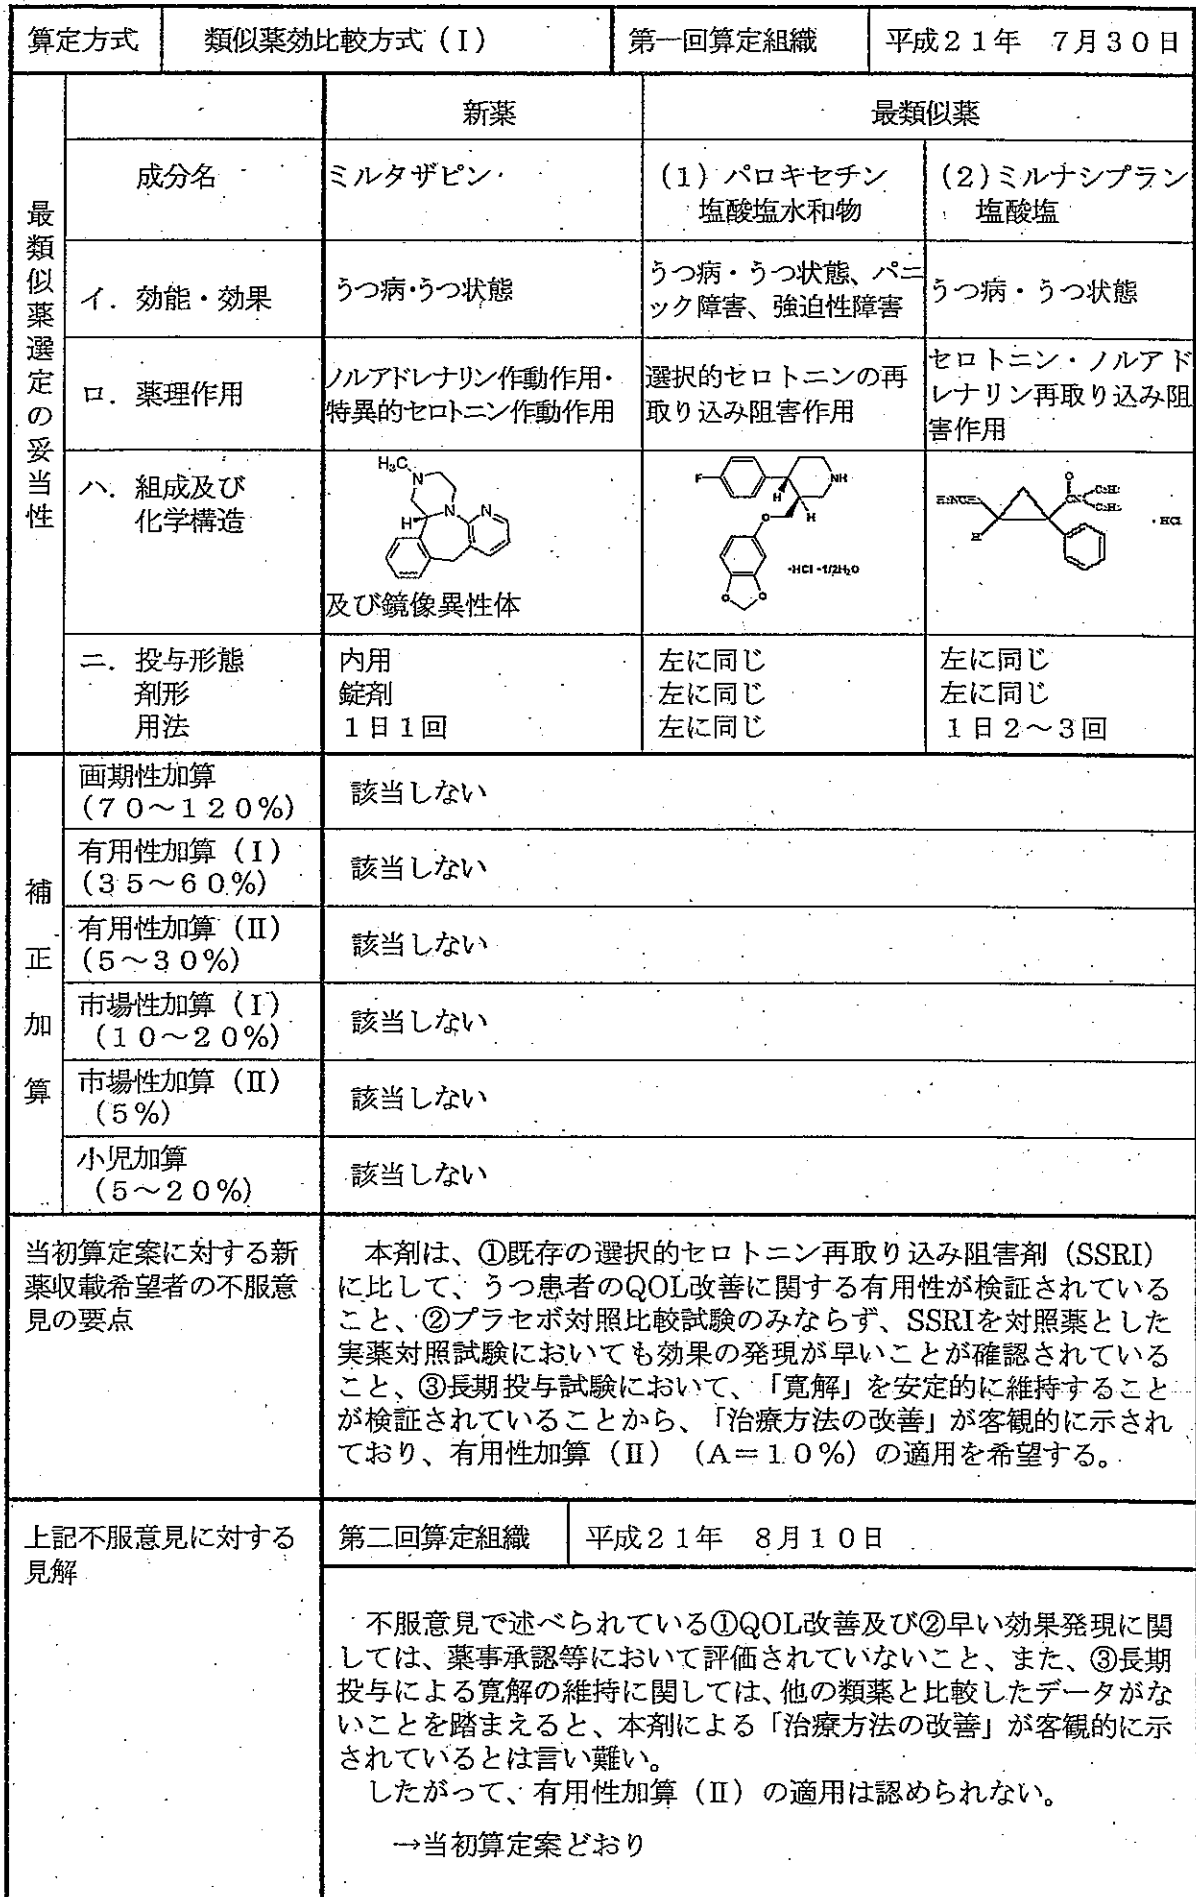 算定方式 類似薬効比較方式（Ⅰ） 第一回算定組織 平成２１年 ７月３０日
最類似薬選定の妥当性
新薬 最類似薬
成分名 ミルタザピン （１）パロキセチン塩酸塩水和物 （２）ミルナシプラン塩酸塩
イ．効能・効果 うつ病・うつ状態 うつ病・うつ状態、パニック障害、強迫性障害 うつ病・うつ状態
ロ．薬理作用 ノルアドレナリン作動作用・特異的セロトニン作動作用 選択的セロトニンの再取り込み阻害作用 セロトニン・ノルアドレナリン再取り込み阻害作用
ハ．組成及び
化学構造
H₃C N H N N
F NH H H O O O ·HCl ·1/2H₂O
H O · HCl
及び鏡像異性体
ニ．投与形態 内用 左に同じ 左に同じ
剤形 錠剤 左に同じ 左に同じ
用法 １日１回 左に同じ １日２～３回
補正加算
画期性加算
（７０～１２０％） 該当しない
有用性加算（Ⅰ）
（３５～６０％） 該当しない
有用性加算（Ⅱ）
（５～３０％） 該当しない
市場性加算（Ⅰ）
（１０～２０％） 該当しない
市場性加算（Ⅱ）
（５％） 該当しない
小児加算
（５～２０％） 該当しない
当初算定案に対する新
薬収載希望者の不服意
見の要点
本剤は、①既存の選択的セロトニン再取り込み阻害剤（SSRI）
に比して、うつ患者のQOL改善に関する有用性が検証されている
こと、②プラセボ対照比較試験のみならず、SSRIを対照薬とした
実薬対照試験においても効果の発現が早いことが確認されている
こと、③長期投与試験において、「寛解」を安定的に維持すること
が検証されていることから、「治療方法の改善」が客観的に示され
ており、有用性加算（Ⅱ）（A＝１０％）の適用を希望する。
上記不服意見に対する
見解
第二回算定組織 平成２１年 ８月１０日
不服意見で述べられている①QOL改善及び②早い効果発現に関
しては、薬事承認等において評価されていないこと、また、③長期
投与による寛解の維持に関しては、他の類薬と比較したデータがな
いことを踏まえると、本剤による「治療方法の改善」が客観的に示
されているとは言い難い。
したがって、有用性加算（Ⅱ）の適用は認められない。
→当初算定案どおり